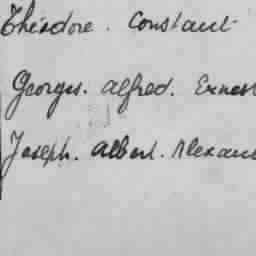 Théodore. Constant
Georges. Alfred. Ernest
Joseph. Albert. Alexan